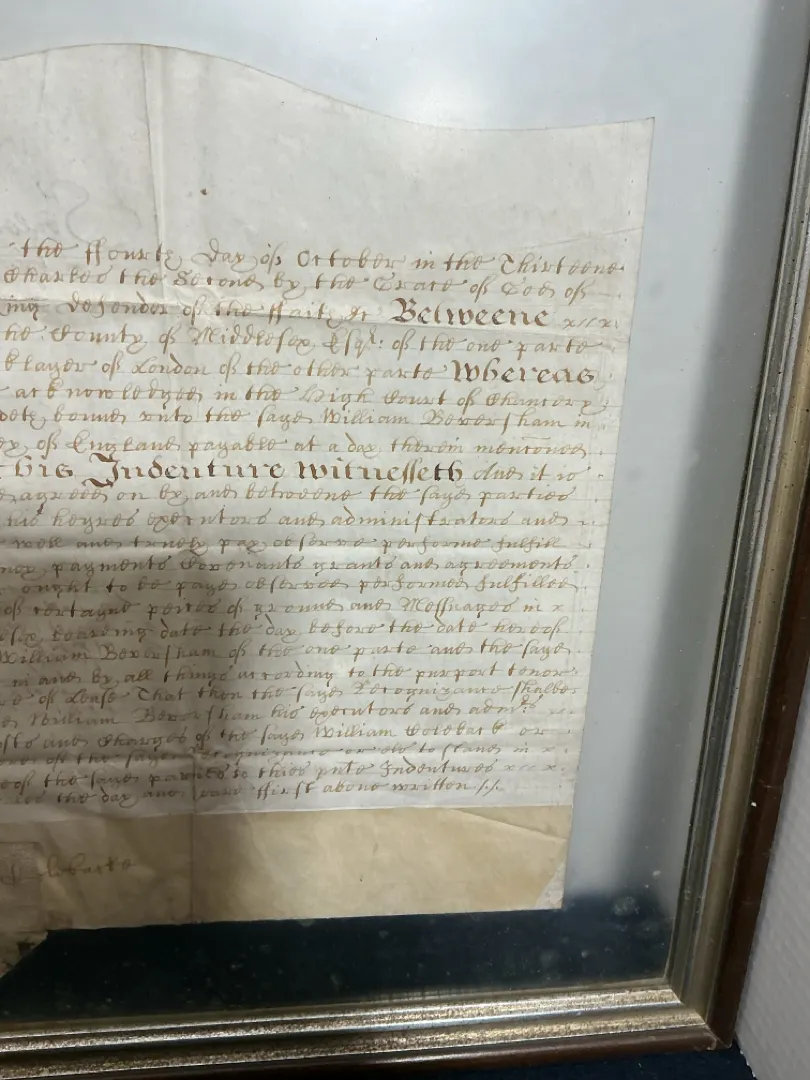 the ffourth day of October in the Thirteene
Charles the Second by the Grace of God of
ing defender of the ffaith &c Betweene
he County of Middlesex Esqr: of the one parte
klayer of London of the other parte Whereas
acknowledged in the High Court of Chancery
bound unto the sayd William Beversham in
ey of England payable at a day therein menconed
his Indenture witnesseth and it is
agreed on by and betweene the sayd parties
his heyres executors and administrators and
well and truely pay observe performe fulfill
payments Covenants grants and agreements
ought to be payd observed performed fulfilled
of certayne peices of ground and Messuages in
sex bearing date the day before the date hereof
William Beversham of the one parte and the sayd
in and by all things according to the purport tenor
e of Lease That then the sayd Recognizance shalbee
William Beversham his executors and admrs
osts and Charges of the sayd William or
of the sayd Recognizance or els to stand in
eof the sayd parties to theis pnte Indentures
the day and yeare ffirst above written